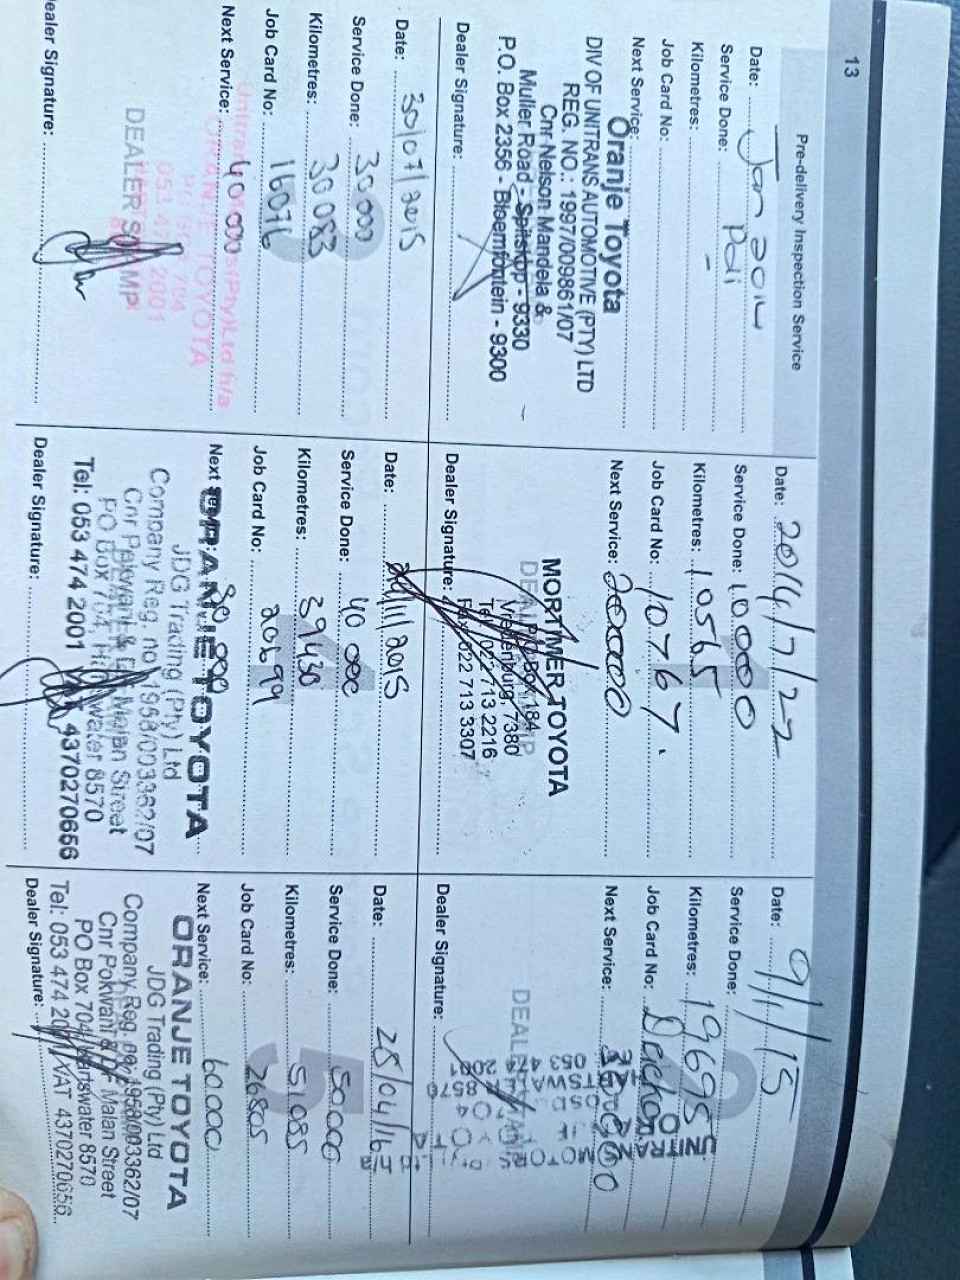 13
Pre-delivery Inspection Service
Date: Jan 2014
Service Done: Pdi
Kilometres: -
Job Card No:
Next Service:
Oranje Toyota
DIV OF UNITRANS AUTOMOTIVE (PTY) LTD
REG. NO.: 1997/009861/07
Cnr Nelson Mandela &
Muller Road - Spitskop - 9330
P.O. Box 2356 - Bloemfontein - 9300
Dealer Signature:
Date: 2014/7/22
Service Done: 10000
Kilometres: 10565
Job Card No: 10767.
Next Service: 20000
MORTIMER TOYOTA
P.O. Box 184
Vredenburg, 7380
Tel: 022 713 2216
Fax: 022 713 3307
Dealer Signature:
Date: 9/1/15
Service Done:
Kilometres: 19695
Job Card No:
Next Service:
Dealer Signature:
Date: 30/07/2015
Service Done: 30000
Kilometres: 30083
Job Card No: 16076
Next Service: 40000
ORANJE TOYOTA
053 474 2001
DEALER STAMP
Dealer Signature:
Date: 24/11/2015
Service Done: 40 000
Kilometres: 39430
Job Card No: 20699
Next Service:
ORANJE TOYOTA
JDG Trading (Pty) Ltd
Company Reg. no 1958/003362/07
Cnr Pokwani & DF Malan Street
PO Box 704, Hartswater 8570
Tel: 053 474 2001 VAT 4370270656
Dealer Signature:
Date: 25/04/16
Service Done: 50000
Kilometres: 51085
Job Card No: 26805
Next Service: 60.000
ORANJE TOYOTA
JDG Trading (Pty) Ltd
Company Reg. no 1958/003362/07
Cnr Pokwani & DF Malan Street
PO Box 704 Hartswater 8570
Tel: 053 474 2001 VAT 4370270656
Dealer Signature: